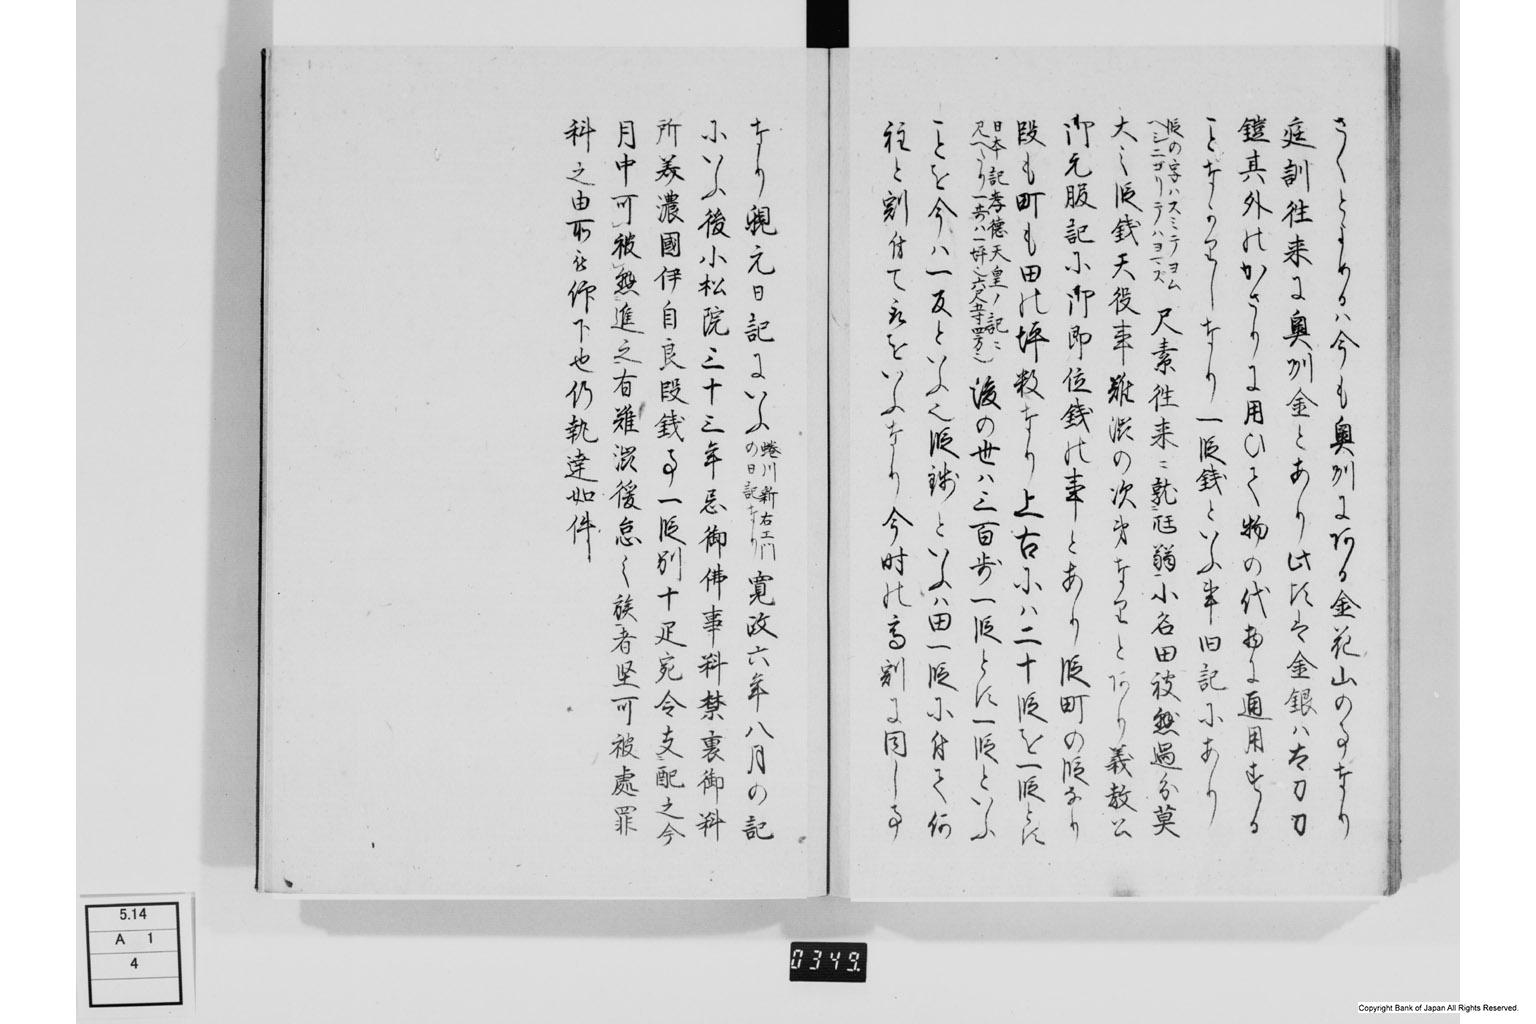 さくとよめるハ今も奥州にある金花山の事なり
庭訓徃来に奥州金とあり此頃は金銀ハ太刀刀
鎧其外のかさりに用ひて物の代物に通用する
ことなかりしなり一段銭といふ事旧記にあり
段の字ハスミテヨム
ヘシニゴリテハヨマズ
尺素徃来ニ就 小名田被懸過分莫
大之段銭天役事難渋の次第なりとあり義教公
御元服記に御即位銭の事とあり段町の段なり
段も町も田の坪数なり上古にハ二十段を一段とす
日本記孝徳天皇ノ記ニ
尺 一歩ハ一坪也六尺五寸四方也
後の世ハ三百歩一段とす一段といふ
ことを今ハ一反といふ也段銭といふハ田一段に付て何
程と割付て を いふなり今時の高割に同し事
なり親元日記にいふ
蜷川新右エ門
の日記なり
寛政六年八月の記
にいふ後小松院三十三年忌御佛事料禁裏御料
所美濃國伊自良段銭事一段別十疋宛令支配之今
月中可被懸進之有難渋後怠之族者堅可被處罪
科之由所被仰下也仍執達如件
5.14
A 1
4
0349.
Copyright Bank of Japan All Rights Reserved.